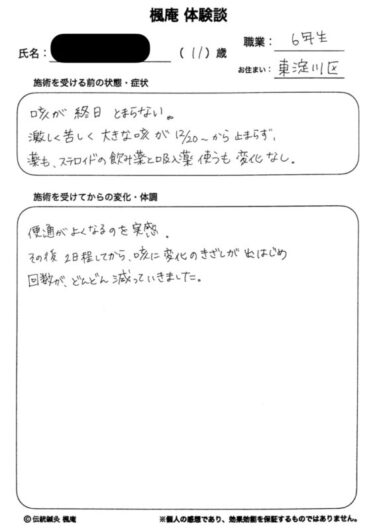 楓庵 体験談
氏名： （11）歳
職業： 6年生
お住まい： 東淀川区
施術を受ける前の状態・症状
咳が 終日 とまらない。
激しく苦しく 大きな咳 が 12/20〜から 止まらず、
薬も、ステロイドの飲み薬と吸入薬 使うも 変化 なし。
施術を受けてからの変化・体調
便通がよくなるのを実感。
その後 2日程してから、咳に変化のきざしが 出はじめ
回数が、どんどん 減っていきました。
© 伝統鍼灸 楓庵
※個人の感想であり、効果効能を保証するものではありません。